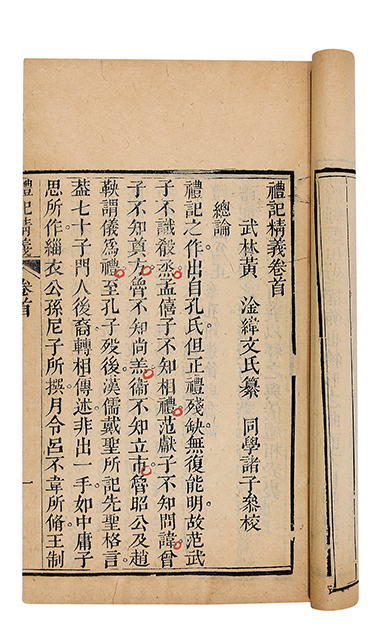 禮記精義卷首
武林黃 淦緯文氏纂 同學諸子叅校
總論
禮記之作出自孔氏但正禮殘缺無復能明故范武
子不識殽烝孟僖子不知相禮范獻子不知問諱曾
子不知奠方魯不知尚羔衞不知立市魯昭公及趙
鞅謂儀為禮至孔子歿後漢儒戴聖所記先聖格言
葢七十子門人後裔轉相傳述非出一手如中庸子
思所作緇衣公孫尼子所撰月令呂不韋所脩王制
禮記精義 卷首 一